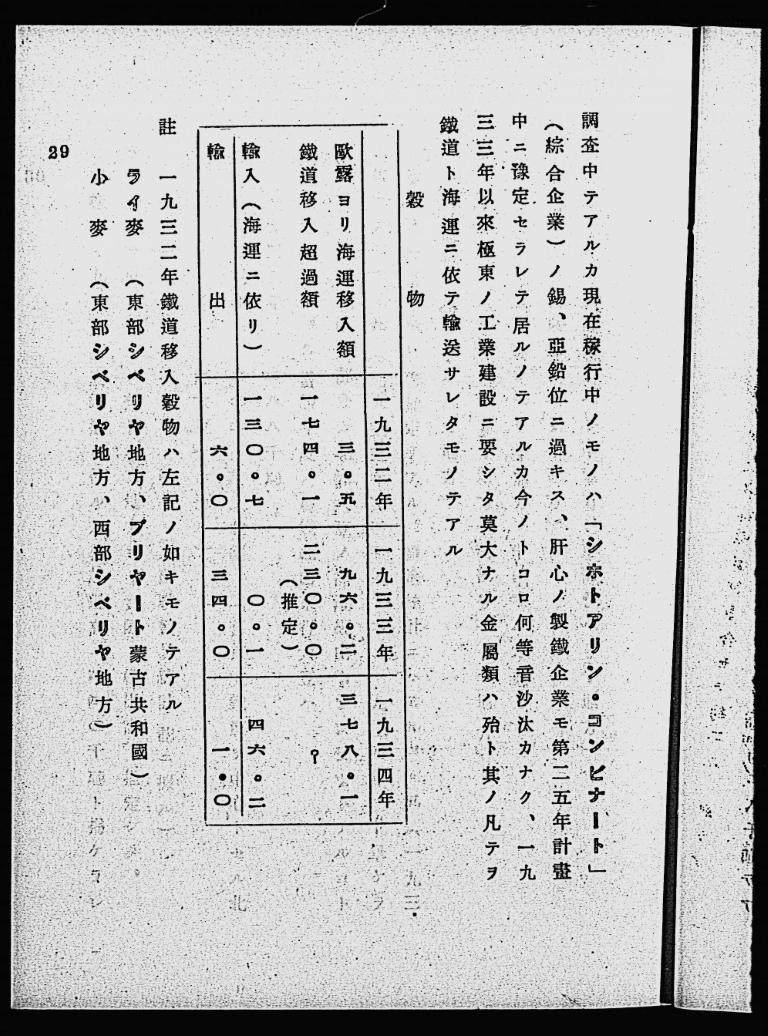 調査中テアルカ現在稼行中ノモノハ「シホトアリン・コンビナート」
(綜合企業)ノ錫、亞鉛位ニ過キス、肝心ノ製鐵企業モ第二五年計畫
中ニ豫定セラレテ居ルノテアルカ今ノトコロ何等音沙汰カナク、一九
三三年以來極東ノ工業建設ニ要シタ莫大ナル金屬類ハ殆ト其ノ凡テヲ
鐵道ト海運ニ依テ輸送サレタモノテアル
穀物
一九三二年 一九三三年 一九三四年
歐露ヨリ海運移入額 三・五 九六・二 三七八・一
鐵道移入超過額 一七四・一 二三〇・〇(推定) ?
輸入(海運ニ依リ) 一三〇・七 〇・一 四六・二
輸出 六・〇 三四・〇 一・〇
註 一九三二年鐵道移入穀物ハ左記ノ如キモノテアル
ライ麥 (東部シベリヤ地方、ブリヤート蒙古共和國)
小麥 (東部シベリヤ地方、西部シベリヤ地方)
29